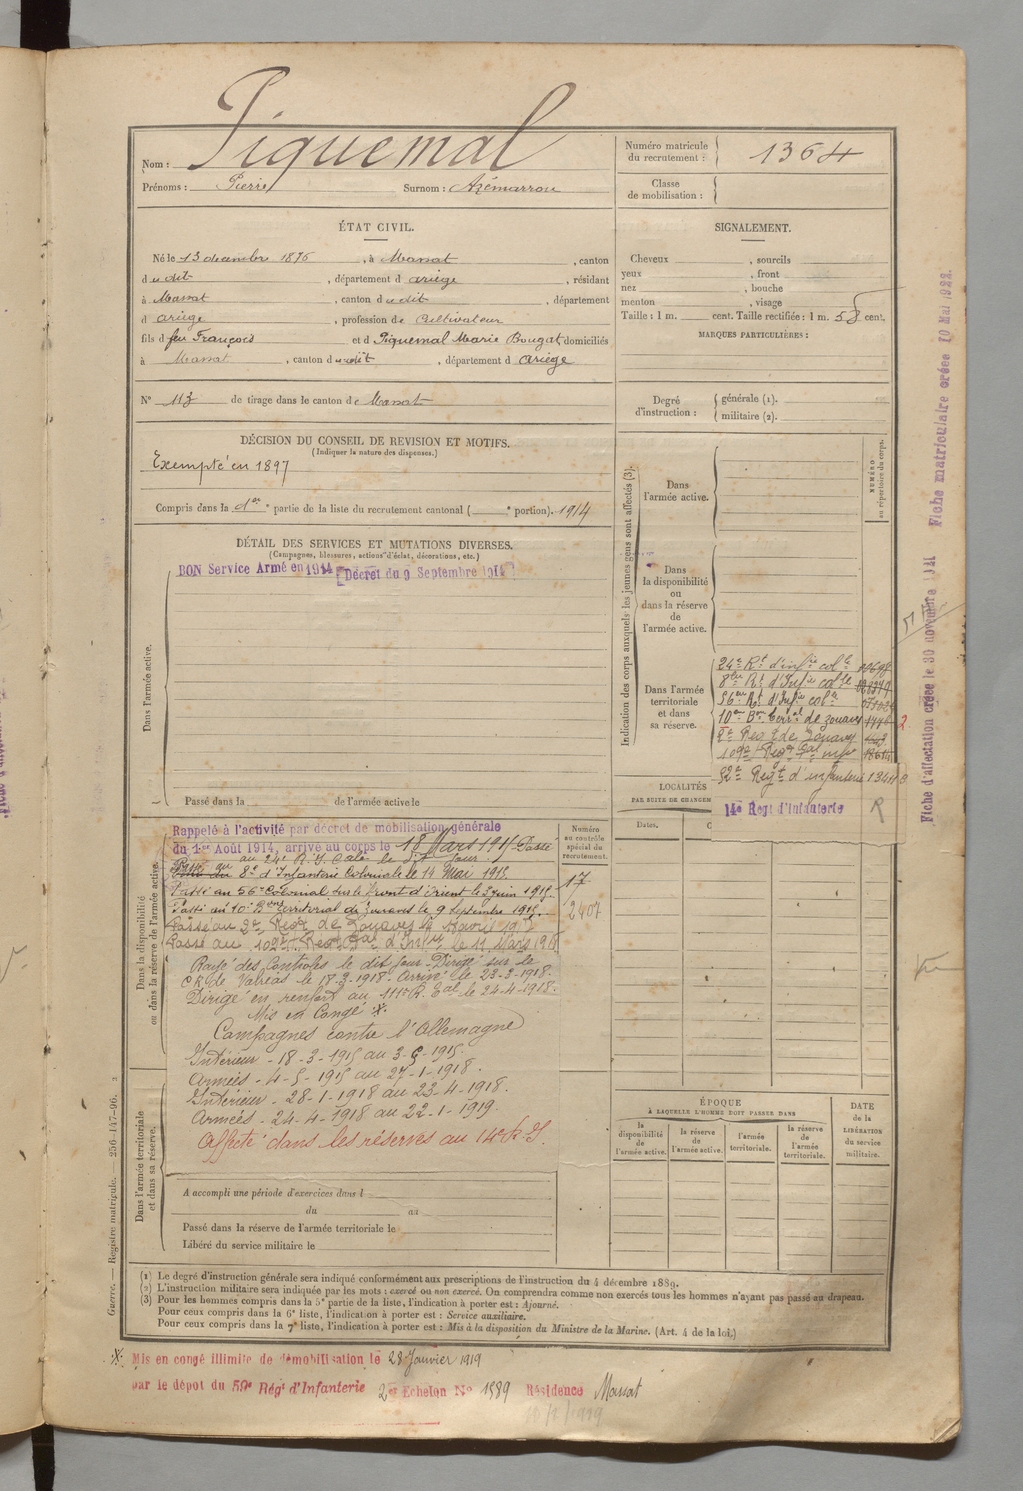 Nom : Piquemal
Prénoms : Pierre Surnom : Azémarrou
Numéro matricule du recrutement : 1364
Classe de mobilisation :
ÉTAT CIVIL.
Né le 13 décembre 1876, à Massat, canton
dudit, département d ariège, résidant
à Massat, canton dudit, département
d ariège, profession de Cultivateur
fils d feu François et d Piquemal Marie Bougat, domiciliés
à Massat, canton dudit, département d ariège
N° 113 de tirage dans le canton de Massat
SIGNALEMENT.
Cheveux , sourcils
yeux , front
nez , bouche
menton , visage
Taille : 1 m. cent. Taille rectifiée : 1 m. 58 cent.
MARQUES PARTICULIÈRES :
Degré d'instruction : générale (1).
militaire (2).
DÉCISION DU CONSEIL DE REVISION ET MOTIFS.
(Indiquer la nature des dispenses.)
Exempté en 1897
Compris dans la 1ère partie de la liste du recrutement cantonal ( e portion). 1914
DÉTAIL DES SERVICES ET MUTATIONS DIVERSES.
(Campagnes, blessures, actions d'éclat, décorations, etc.)
BON Service Armé en 1914 Décret du 9 Septembre 1914
Dans l'armée active.
Passé dans la de l'armée active le
Indication des corps auxquels les jeunes gens sont affectés (3).
NUMÉRO au répertoire du corps.
Dans l'armée active.
Dans la disponibilité ou dans la réserve de l'armée active.
Dans l'armée territoriale et dans sa réserve.
24e Rt d'infie colle
8ème Rt d'Infie colle
56ème Rt d'Infie cole
10me Bon terral de zouaves
2e Regt de Zouaves
109e Regt
52e Regt d'infanterie
14e Regt d'Infanterie
R
LOCALITÉS
PAR SUITE DE CHANGEM
Dates.
Dans la disponibilité ou dans la réserve de l'armée active.
Rappelé à l'activité par décret de mobilisation générale
du 1er Août 1914, arrivé au corps le 18 Mars 1915 Passé
au 24e R.I. Cole le dit jour.
Passé au 8e d'Infanterie Coloniale le 14 Mai 1915.
Passé au 56e Colonial sur le front d'Orient le 3 juin 1915.
Passé au 10e Bon territorial de zouaves le 9 Septembre 1915.
Rayé des Contrôles le dit jour. Dirigé sur le
CR de Valréas le 18-3-1918 Arrivé le 23-3-1918.
Dirigé en renfort au 111e R. Eal le 24-4-1918.
Mis en Congé X.
Campagnes contre l'Allemagne
Intérieur - 18-3-1915 au 3-5-1915.
Armées - 4-5-1915 au 27-1-1918.
Intérieur - 28-1-1918 au 23-4-1918.
Armées - 24-4-1918 au 22-1-1919.
Affecté dans les réserves au 14e R.I.
Numéro au contrôle spécial du recrutement.
17
2407
Dans l'armée territoriale et dans sa réserve.
A accompli une période d'exercices dans l
du au
Passé dans la réserve de l'armée territoriale le
Libéré du service militaire le
ÉPOQUE
À LAQUELLE L'HOMME DOIT PASSER DANS
la disponibilité de l'armée active.
la réserve de l'armée active.
l'armée territoriale.
la réserve de l'armée territoriale.
DATE de la LIBÉRATION du service militaire.
(1) Le degré d'instruction générale sera indiqué conformément aux prescriptions de l'instruction du 4 décembre 1889.
(2) L'instruction militaire sera indiquée par les mots : exercé ou non exercé. On comprendra comme non exercés tous les hommes n'ayant pas passé au drapeau.
(3) Pour les hommes compris dans la 5e partie de la liste, l'indication à porter est : Ajourné.
Pour ceux compris dans la 6e liste, l'indication à porter est : Service auxiliaire.
Pour ceux compris dans la 7e liste, l'indication à porter est : Mis à la disposition du Ministre de la Marine. (Art. 4 de la loi.)
Guerre. — Registre matricule. 256-147-96.
X. Mis en congé illimité de démobilisation le 28 Janvier 1919
par le dépôt du 59e Régt d'Infanterie 2e Echelon N° 1589 Résidence Massat
Fiche d'affectation créée le 30 novembre 1921
Fiche matriculaire créée 10 Mai 1922.